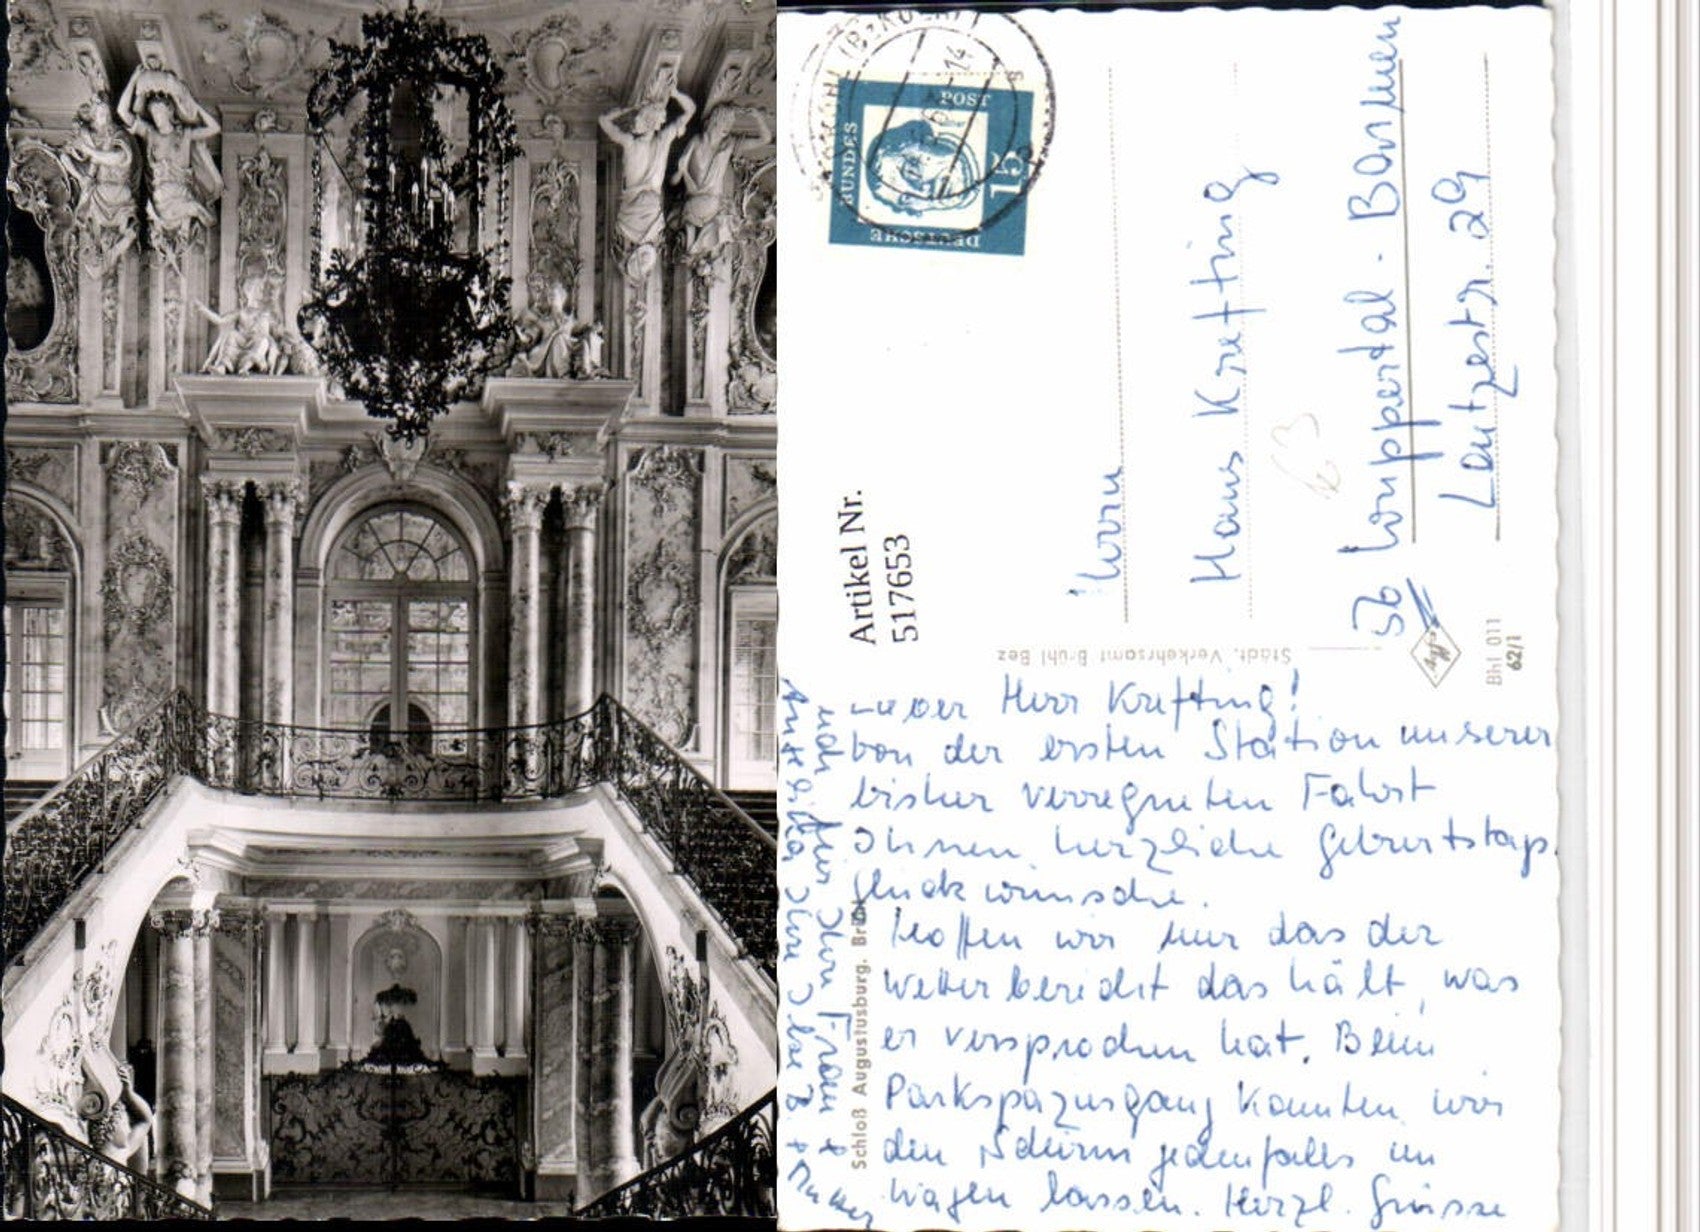 DEUTSCHE
BUNDES
POST
15
Artikel Nr.
517653
Herrn
Hans Krefting
56 Wuppertal - Barmen
Lentzestr. 29
Städt. Verkehrsamt Brühl Bez
Bhl 011
62/1
Schloß Augustusburg, Brühl
Herr Krefting!
Von der ersten Station unserer
bisher verregneten Fahrt
Ihnen herzliche Geburtstags
glückwünsche.
Hoffen wir nur das der
Wetterbericht das hält, was
er versprochen hat. Beim
Parkspaziergang konnten wir
den Schirm jedenfalls im
Wagen lassen. Herzl. Grüsse
auch für Ihre Frau &
Ihre Ilse B. & Mutter